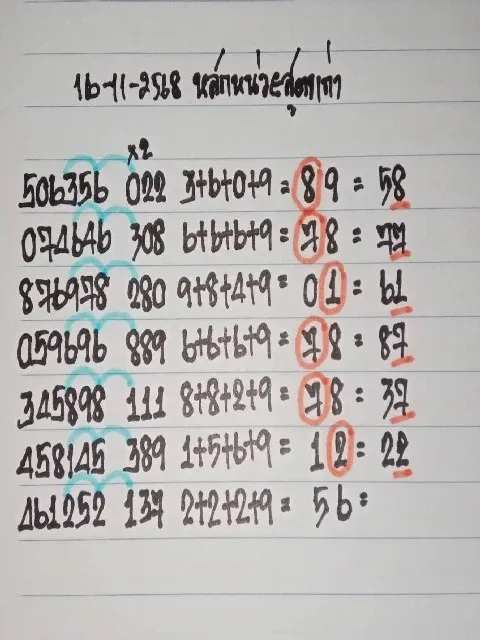 16-11-2568 หลักหน่วยสูตรเก่า
×2
506356 022 3+6+0+9 = 89 = 58
074646 308 6+6+6+9 = 78 = 77
876978 280 9+8+4+9 = 01 = 61
059696 889 6+6+6+9 = 78 = 87
345898 111 8+8+2+9 = 78 = 37
458145 389 1+5+6+9 = 12 = 22
461252 137 2+2+2+9 = 56 =